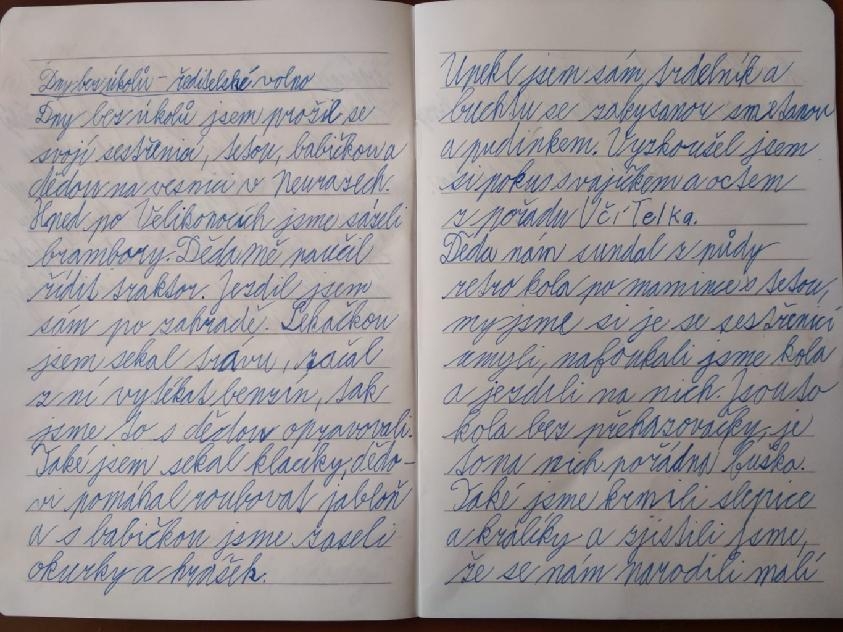 Dny bez úkolů - ředitelské volno
Dny bez úkolů jsem prožil se
svojí sestřenicí, tetou, babičkou a
dědou na vesnici v Neurazech.
Hned po Velikonocích jsme sázeli
brambory. Děda mě naučil
řídit traktor. Jezdil jsem
sám po zahradě. Sekačkou
jsem sekal trávu, začal
z ní vytékat benzín, tak
jsme to s dědou opravovali.
Také jsem sekal klacíky, dědo-
vi pomáhal roubovat jabloň
a s babičkou jsme zaseli
okurky a hrášek.
Upekl jsem sám trdelník a
buchtu se zakysanou smetanou
a pudinkem. Vyzkoušel jsem
si pokus s vajíčkem a octem
z pořadu UčíTelka.
Děda nám sundal z půdy
retro kola po mamince s tetou,
my jsme si je se sestřenicí
umyli, nafoukali jsme kola
a jezdili na nich. Jsou to
kola bez přehazovačky, je
to na nich pořádná fuška.
Také jsme krmili slepice
a králíky a zjistili jsme,
že se nám narodili malí